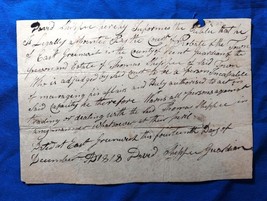 David Shippee hereby Informs the Public that he
is Legally Appointed by the Court of Probate the Town
of East Greenwich in the County of Kent Guardian of the
Person and Estate of Thomas Shippee of said Town
Who is adjudged by said Court to be a person Incapable
of managing his affairs and duly authorized to act in
said Capacity he therefore Warns all persons against
trading or dealing with the said Thomas Shippee in
any manner Whatsoever at their peril
Dated at East Greenwich this fourteenth Day of
December AD 1818 David Shippee Guardian